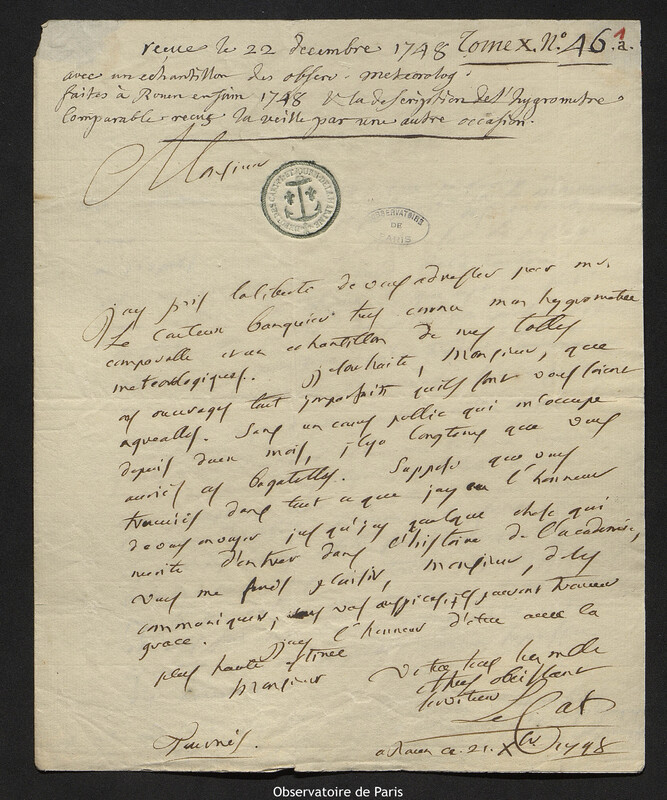 reçue le 22 decembre 1748 Tome X. N.º 46.a.
avec un echantillon des observ. meteorolog.
faites à Rouen en Juin 1748 & la description de l'hygrometre
Comparable reçus la veille par une autre occasion.
Monsieur
DEPOT DES CARTES ET PLANS DE LA MARINE
OBSERVATOIRE
DE
PARIS
j'ay pris la liberté de vous adresser par mr.
Le Couteux banquier un hygrometre
comparable et un echantillon de mes tables
meteorologiques. je souhaite, Monsieur, que
ces ouvrages tout jmparfaits qu'ils sont vous soient
agreables. Sans un cours public qui m'occupe
depuis deux mois, jl y a longtems que vous
auriés ces bagatelles. Supposé que vous
trouviés dans tout ce que j'ay eu l'honneur
de vous envoyer jusqu'jcy quelque chose qui
merite d'entrer dans l'histoire de l'academie,
vous me ferés plaisir, Monsieur, de les
communiquer, sous vos auspices, jls peuvent trouver
grace. j'ay l'honneur d'etre avec la
plus haute estime
Monsieur Votre tres humble
et tres obeissant
serviteur
Le Cat
Tournés.
a Rouen ce 21. Xbre 1748
Observatoire de Paris